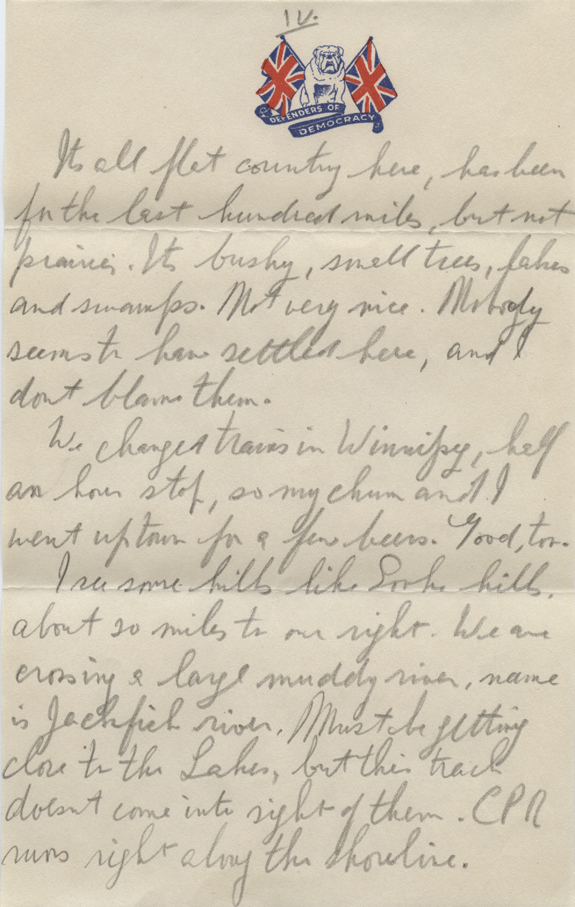 IV.
DEFENDERS OF
DEMOCRACY
Its all flat country here, has been
for the last hundred miles, but not
prairie. Its bushy, small trees, lakes
and swamps. Not very nice. Nobody
seems to have settled here, and I
dont blame them.
We changed trains in Winnipeg, half
an hour stop, so my chum and I
went uptown for a few beers. Good, too.
I see some hills like Sooke hills,
about 20 miles to our right. We are
crossing a large muddy river, name
is Jackfish river. Must be getting
close to the Lakes, but this track
doesnt come into sight of them. CPR
runs right along the shoreline.